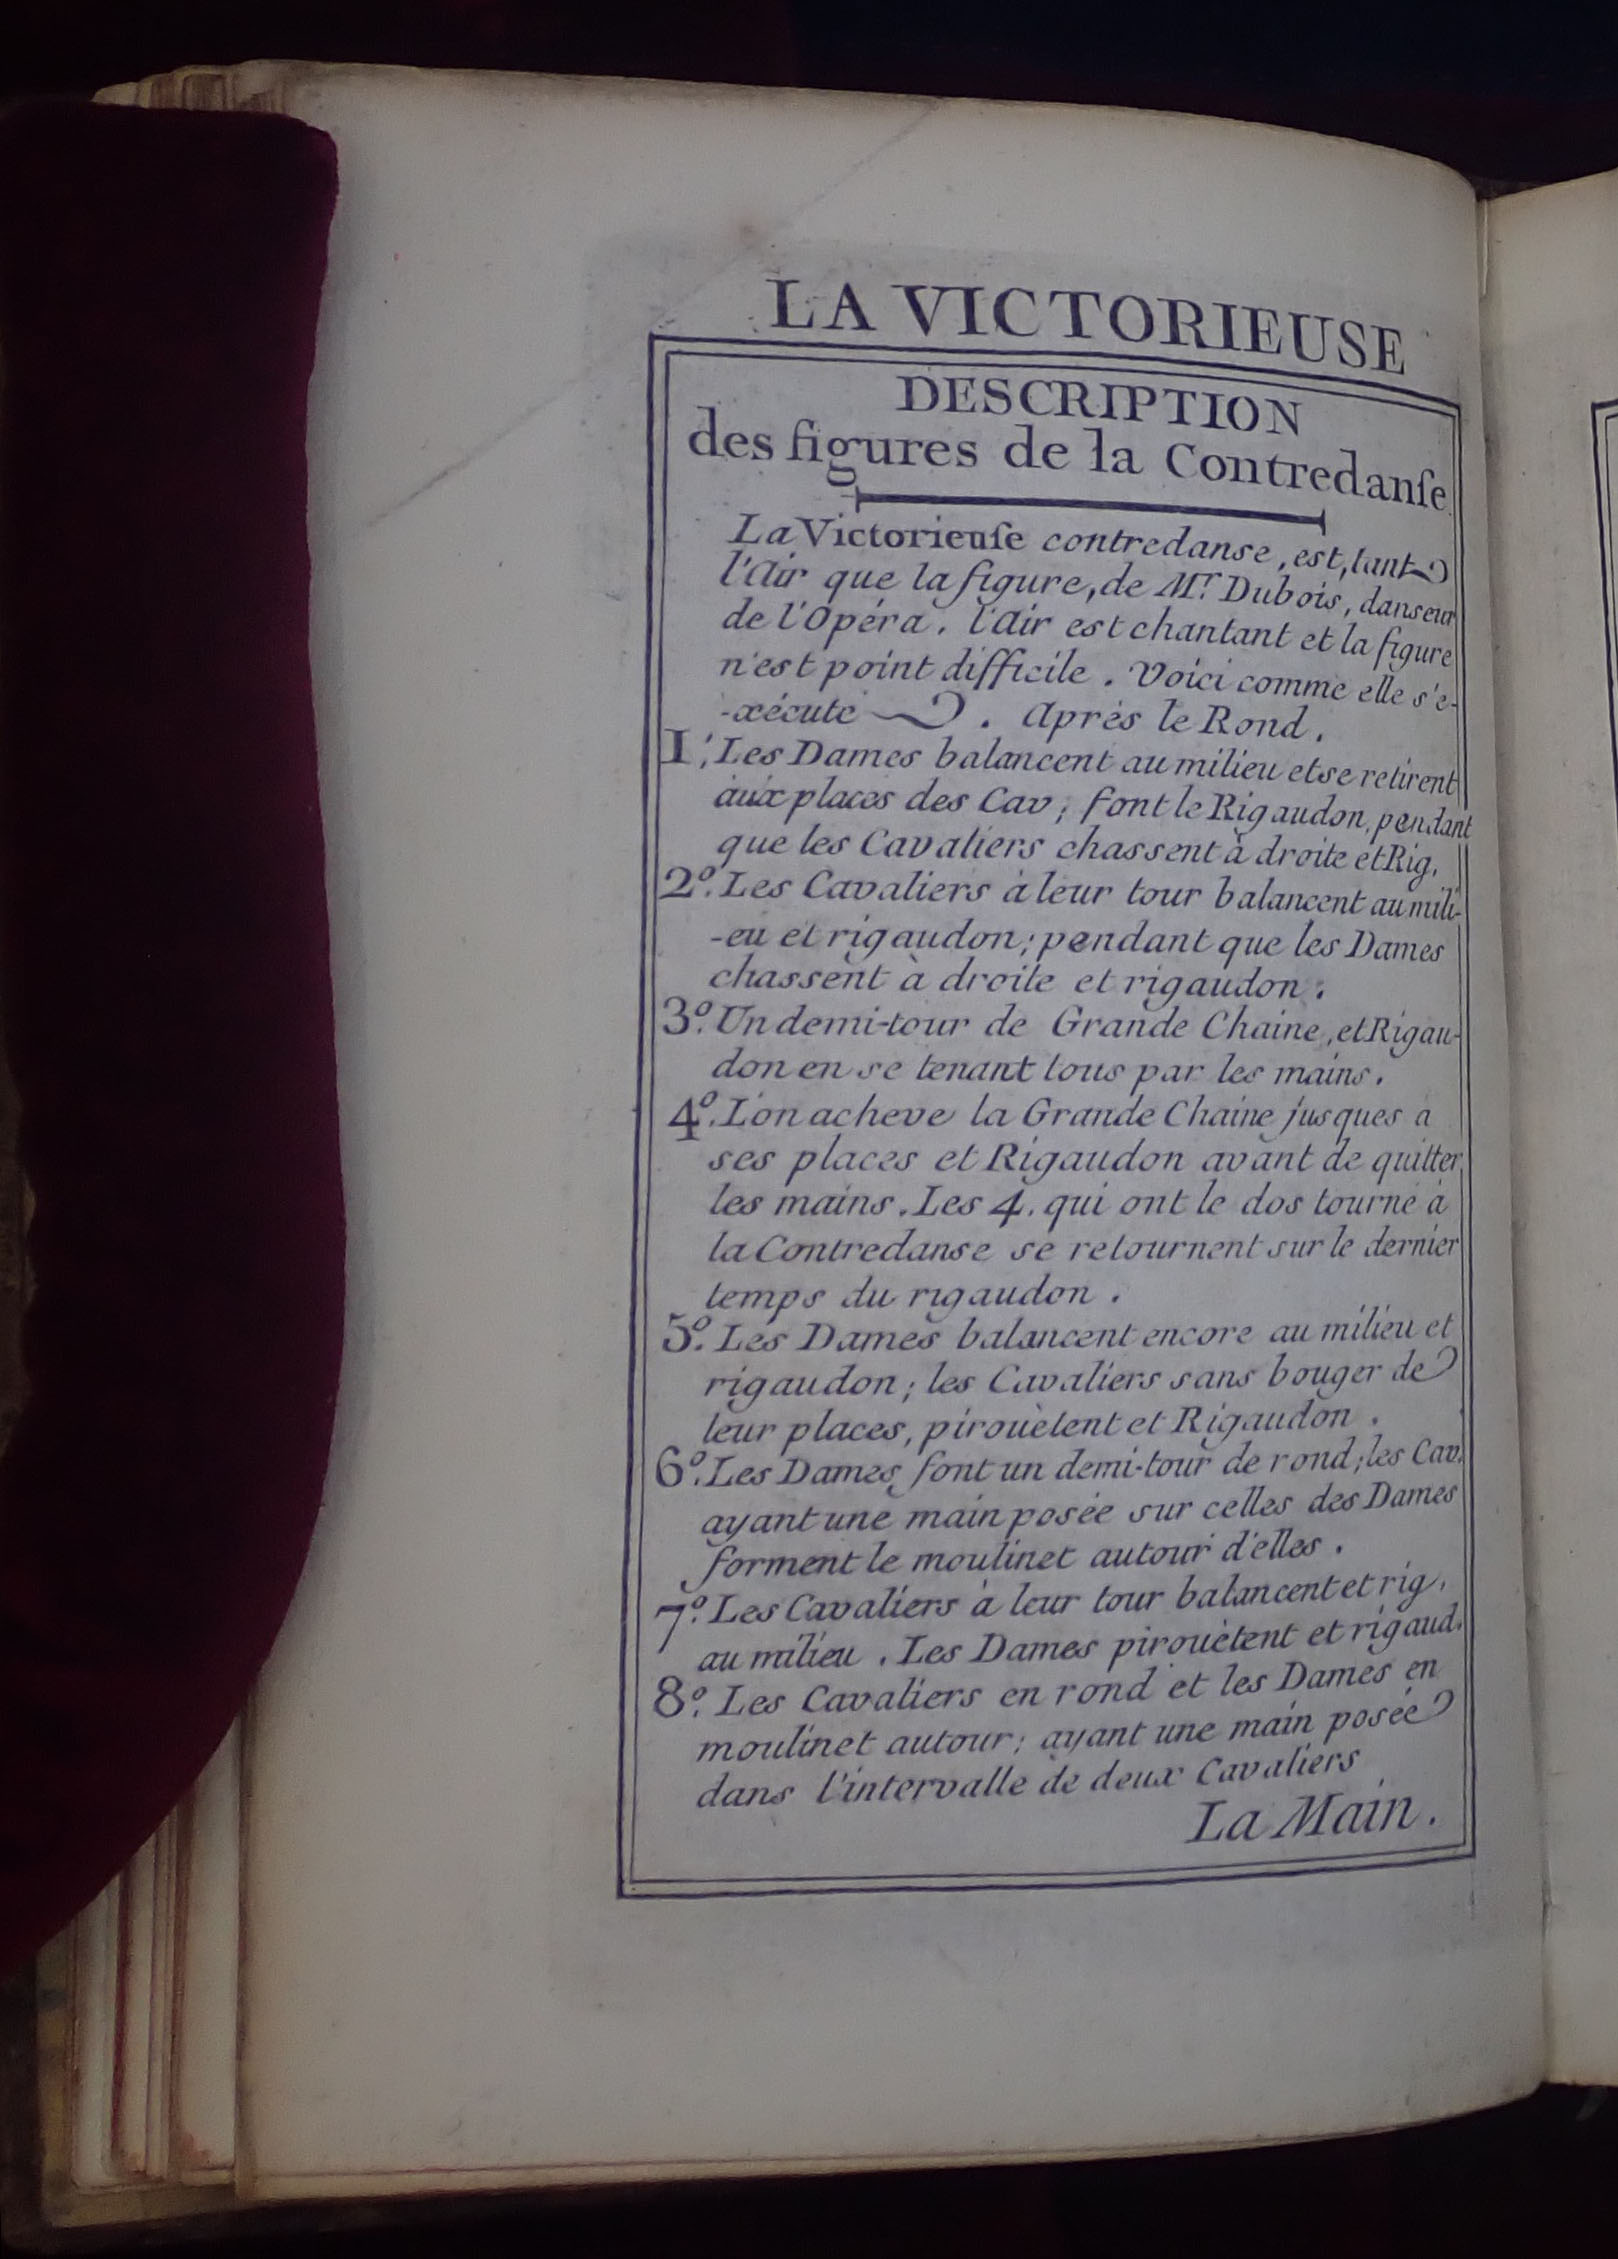 LA VICTORIEUSE
DESCRIPTION
des figures de la Contredanſe
La Victorieuſe contredanse, est, tant
l'Air que la figure, de Mr. Dubois, danseur
de l'Opéra. l'Air est chantant et la figure
n'est point difficile. Voici comme elle s'e-
-xécute. Aprés le Rond.
1.° Les Dames balancent au milieu et se retirent
aux places des Cav; font le Rigaudon, pendant
que les Cavaliers chassent à droite et Rig.
2.° Les Cavaliers à leur tour balancent au mili-
-eu et rigaudon; pendant que les Dames
chassent à droite et rigaudon.
3.° Un demi-tour de Grande Chaine, et Rigau-
don en se tenant tous par les mains.
4.° L'on acheve la Grande Chaine jusques a
ses places et Rigaudon avant de quitter
les mains. Les 4. qui ont le dos tourné à
la Contredanse se retournent sur le dernier
temps du rigaudon.
5.° Les Dames balancent encore au milieu et
rigaudon; les Cavaliers sans bouger de
leur places, pirouètent et Rigaudon.
6.° Les Dames font un demi-tour de rond; les Cav.
ayant une main posée sur celles des Dames
forment le moulinet autour d'elles.
7.° Les Cavaliers à leur tour balancent et rig.
au milieu. Les Dames pirouètent et rigaud.
8.° Les Cavaliers en rond et les Dames en
moulinet autour; ayant une main posée
dans l'intervalle de deux Cavaliers
La Main.